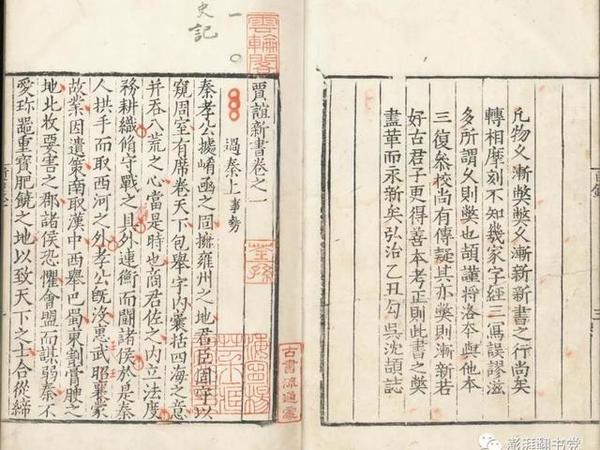 凡物久漸獘獘久漸新新書之行尚矣
轉相摩刻不知幾家字經三寫誤謬滋
多所謂久則獘也頡謹将洛本與他本
三復叅校尚有傳疑其亦獘則漸新若
好古君子更得善本考正則此書之獘
盡革而永新矣弘治乙丑勾吳沈頡誌
古書流通處
雲輪閣
荃孫
一〇
史記
賈誼新書卷之一
過秦上 事勢
秦孝公據崤函之固擁雍州之地君臣固守以
窺周室有席卷天下包舉宇內囊括四海之意
并吞八荒之心當是時也商君佐之內立法度
務耕織脩守戰之具外連衡而鬬諸侯於是秦
人拱手而取西河之外孝公旣沒惠武昭襄蒙
故業因遺策南取漢中西舉巴蜀東割膏腴之
地北收要害之郡諸侯恐懼會盟而謀弱秦不
愛珍器重寶肥饒之地以致天下之士合從締
澎湃翻书党